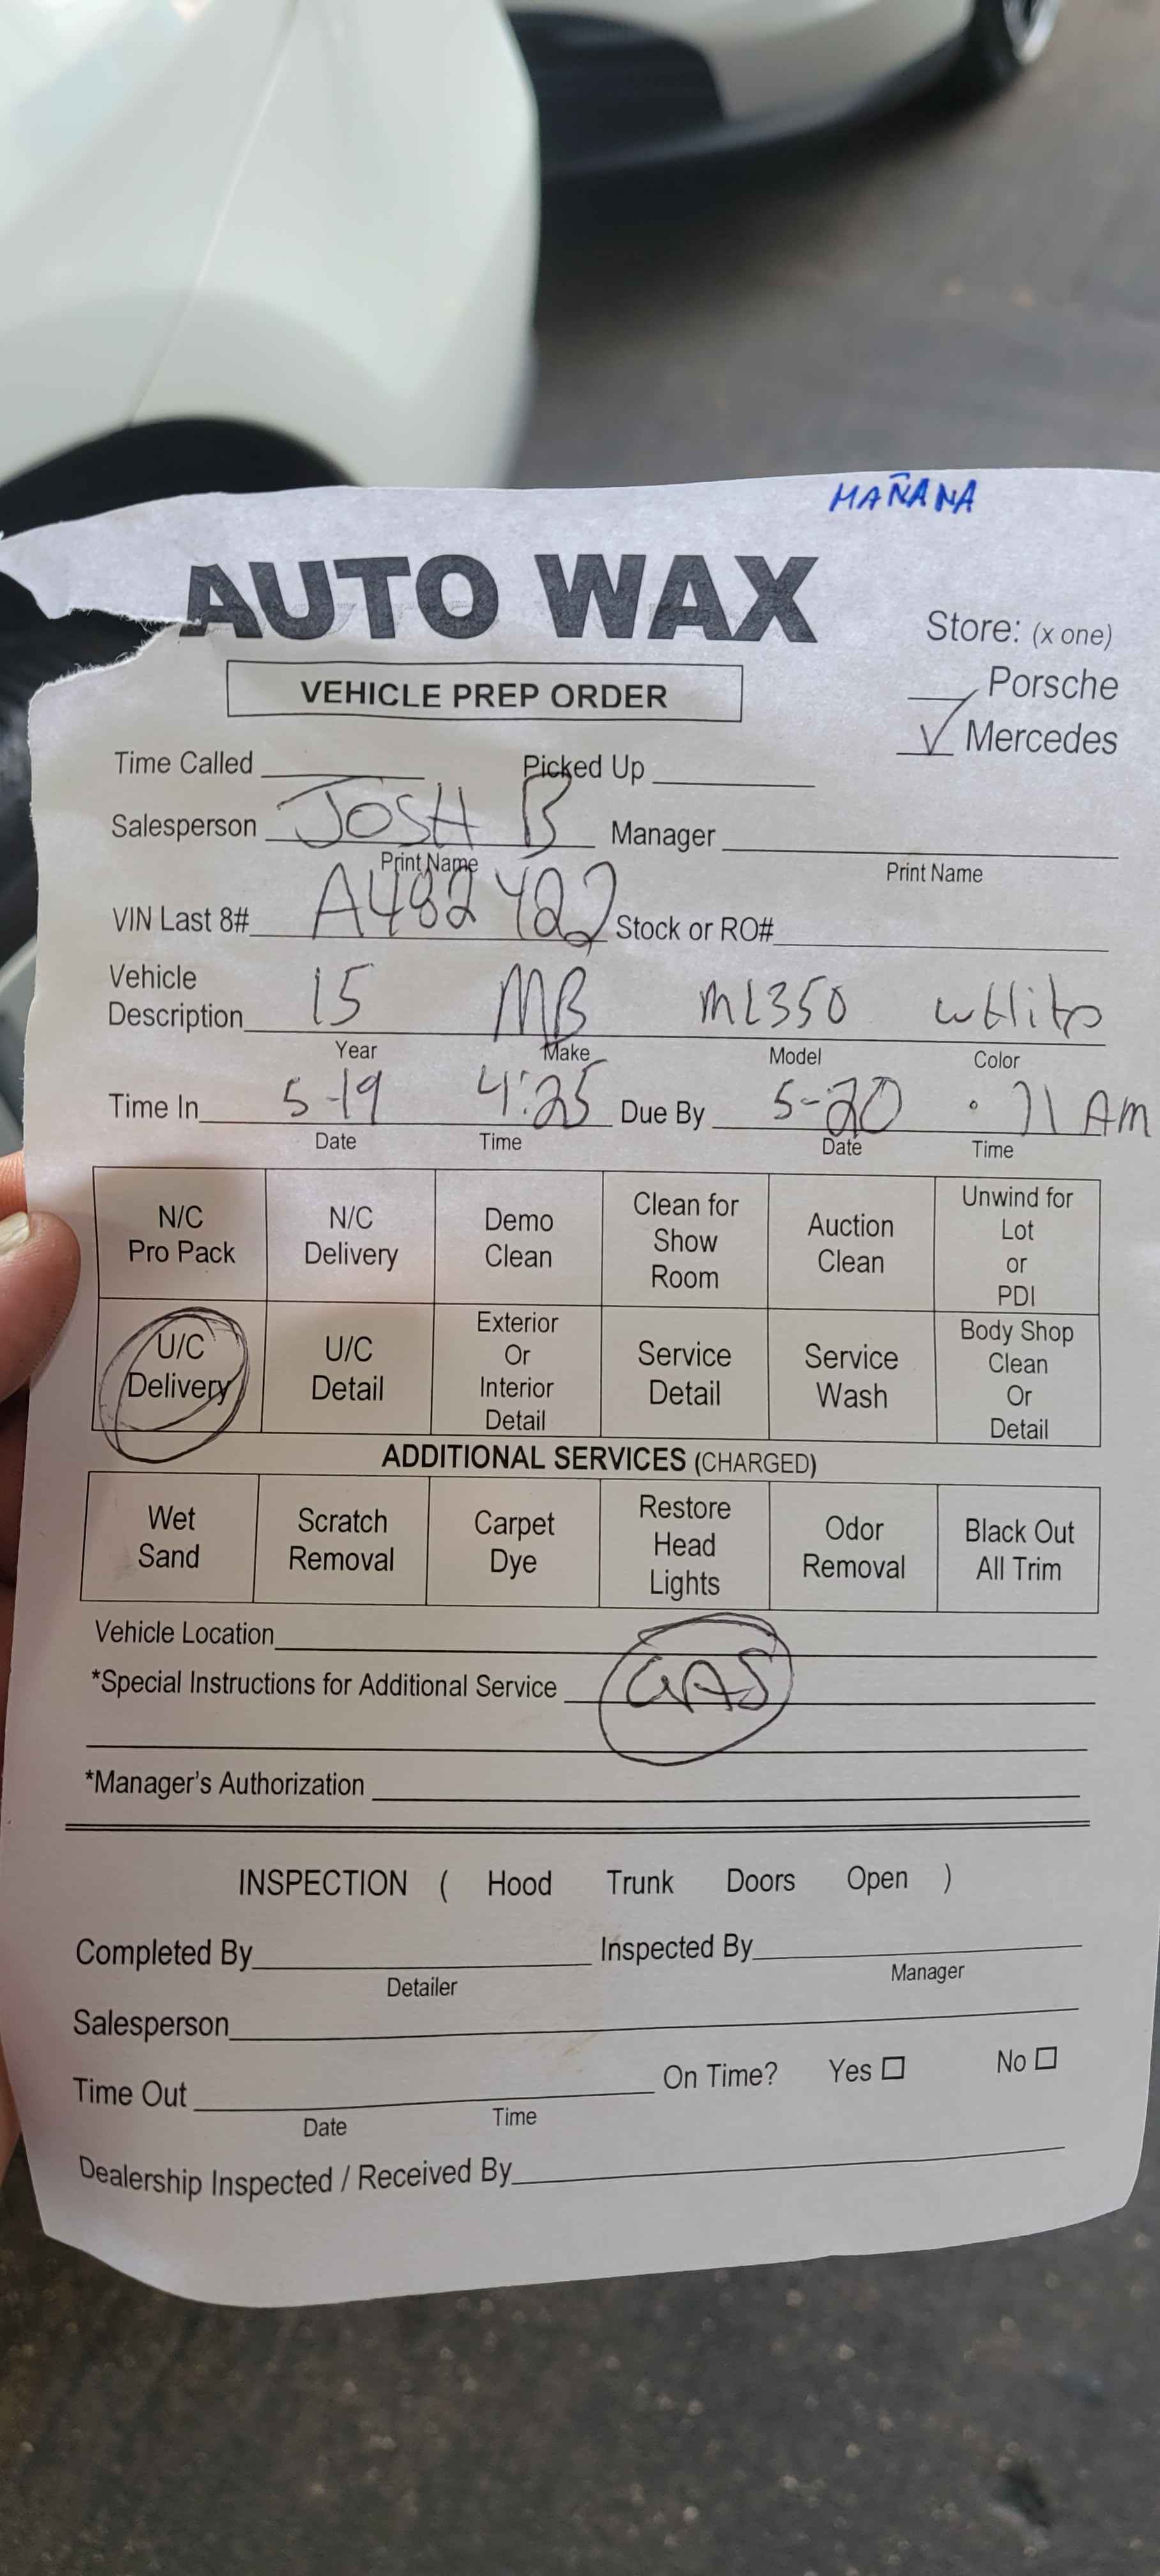 MAÑANA
AUTO WAX
Store: (x one)
VEHICLE PREP ORDER
Porsche
✓ Mercedes
Time Called Picked Up
Salesperson JOSH B Manager
Print Name Print Name
VIN Last 8# A482422 Stock or RO#
Vehicle
Description 15 MB ML350 wHite
Year Make Model Color
Time In 5-19 4:25 Due By 5-20 11 AM
Date Time Date Time
N/C Pro Pack
N/C Delivery
Demo Clean
Clean for Show Room
Auction Clean
Unwind for Lot or PDI
U/C Delivery
U/C Detail
Exterior Or Interior Detail
Service Detail
Service Wash
Body Shop Clean Or Detail
ADDITIONAL SERVICES (CHARGED)
Wet Sand
Scratch Removal
Carpet Dye
Restore Head Lights
Odor Removal
Black Out All Trim
Vehicle Location
*Special Instructions for Additional Service GAS
*Manager's Authorization
INSPECTION ( Hood Trunk Doors Open )
Completed By Inspected By
Detailer Manager
Salesperson
Time Out On Time? Yes ☐ No ☐
Date Time
Dealership Inspected / Received By